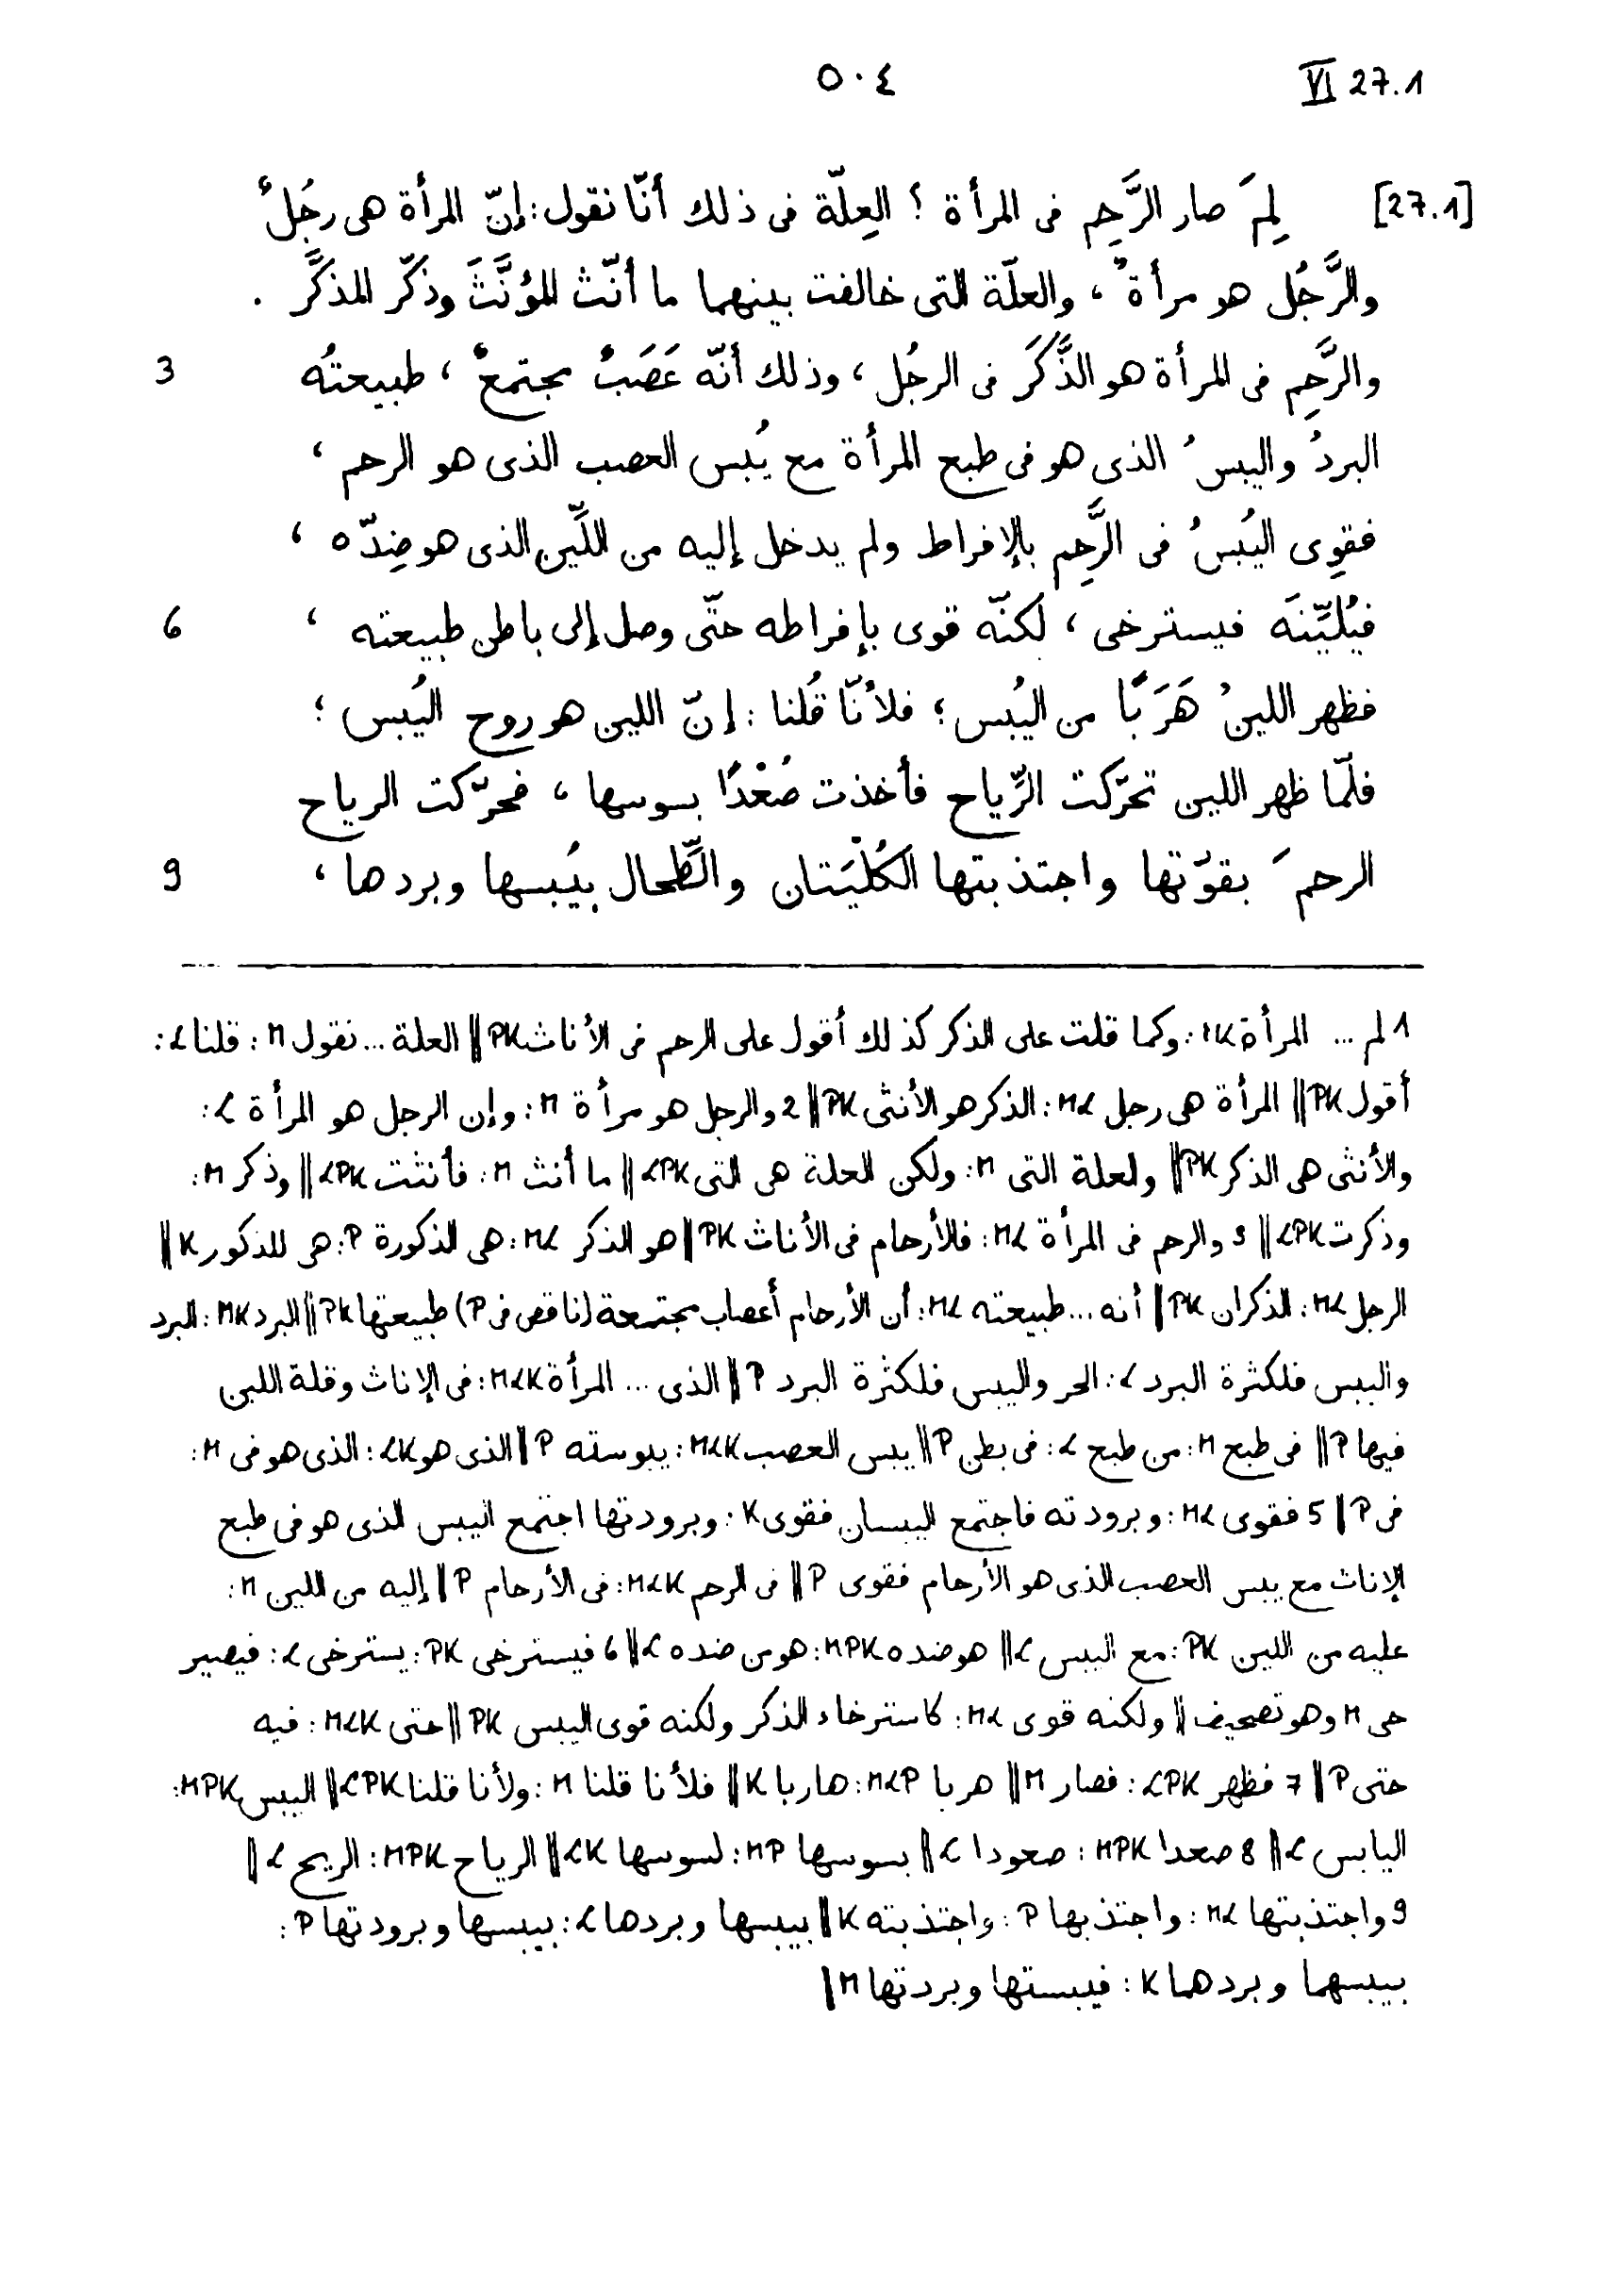 ٥٠٤ VI 27.1
[27.1] لِمَ صار الرَّحِم فى المرأة ؟ العِلّة فى ذلك أنّا نقول : إنّ المرأة هى رجُلٌ
والرَّجُل هو مرأةٌ ، والعلّة التى خالفت بينهما ما أنّث المؤنَّثَ وذكّر المذكَّر .
3 والرَّحِم فى المرأة هو الذَّكَر فى الرجُل ، وذلك أنّه عَصَبٌ مجتمعٌ ، طبيعتُه
البردُ واليبسُ الذى هو فى طبع المرأة مع يُبس العصب الذى هو الرحم ،
فقوِى اليُبسُ فى الرَّحِم بالإفراط ولم يدخل إليه من اللِّين الذى هو ضِدّه ،
6 فيُليّنَه فيسترخى ، لكنّه قوى بإفراطه حتّى وصل إلى باطن طبيعته ،
فظهر اللينُ هَرَبًا من اليُبس ؛ فلأنّا قُلنا : إنّ اللين هو روح اليُبس ؛
فلمّا ظهر اللين تحرّكت الرِّياح فأخذت صُعْدًا بسوسها ، فحرّكت الرياح
9 الرحمَ بقوّتها واجتذبتها الكُلْيَتان والطِّحال بيُبسها وبردها ،
1 لم ... المرأة : وكما قلت على الذكر كذلك أقول على الرحم فى الأناث PK || العلة ... نقول M : قلنا L :
أقول PK || المرأة هى رجل ML : الذكر هو الأنثى PK || 2 والرجل هو مرأة M : وإن الرجل هو المرأة L :
والأنثى هى الذكر PK || ولعلة التى M : ولكن العلة هى التى LPK || ما أنث M : فأنثت LPK || وذكر M :
وذكرت LPK || 3 والرحم فى المرأة ML : فالأرحام فى الأناث PK || هو الذكر ML : هى الذكورة P : هى للذكور K ||
الرجل ML : الذكران PK || أنه ... طبيعته ML : أن الأرحام أعصاب مجتمعة (ناقص فى P) طبيعتها PK || البرد MK : البرد
واليبس فلكثرة البرد L : الحر واليبس فلكثرة البرد P || الذى ... المرأة MLK : فى الإناث وقلة اللين
فيها P || فى طبع M : من طبع L : فى بطن P || يبس العصب MLK : يبوسته P || الذى هو LK : الذى هو فى M :
فى P || 5 فقوى ML : وبرودته فاجتمع اليبسان فقوى K : وبرودتها اجتمع اليبس الذى هو فى طبع
الإناث مع يبس العصب الذى هو الأرحام فقوى P || فى الرحم MLK : فى الأرحام P || إليه من اللين M :
عليه من اللين PK : مع اليبس L || هو ضده MPK : هو من ضده L || 6 فيسترخى PK : يسترخى L : فيصير
حى M وهو تصحيف || ولكنه قوى ML : كاسترخاء الذكر ولكنه قوى اليبس PK || حتى MLK : فيه
حتى P || 7 فظهر LPK : فصار M || هربا MLP : هاربا K || فلأنا قلنا M : ولأنا قلنا LPK || اليبس MPK :
اليابس L || 8 صعدا MPK : صعودا L || بسوسها MP : لسوسها LK || الرياح MPK : الريح L ||
9 واجتذبتها ML : واجتذبها P : واجتذبته K || بيبسها وبردها L : بيبسها وبرودتها P :
بيبسهما وبردهما K : فيبستها وبردتها M ||